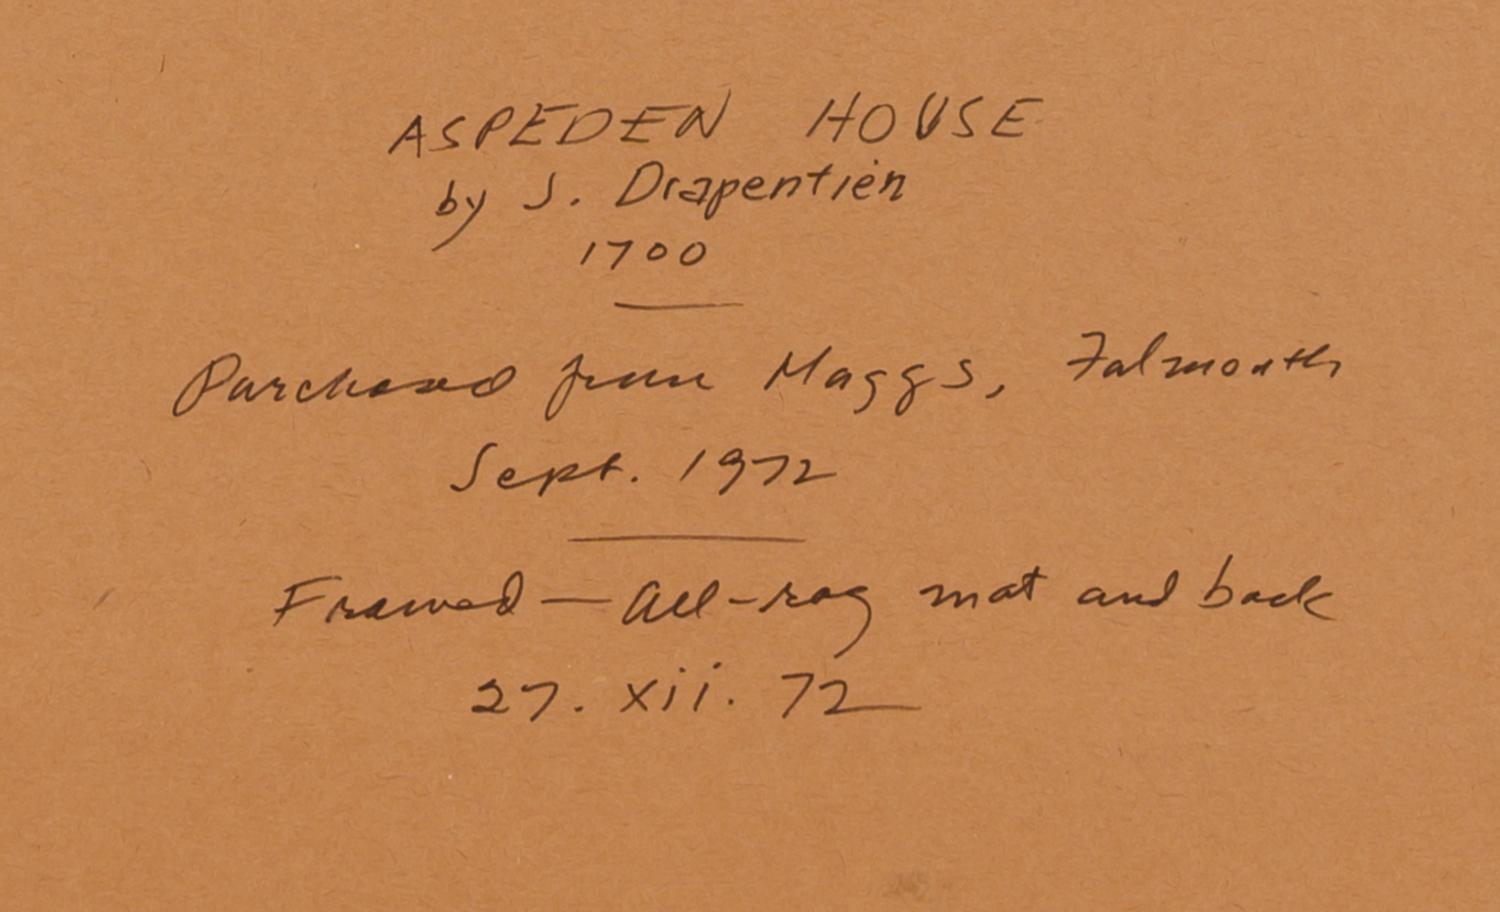 ASPEDEN HOUSE
by J. Drapentien
1700
Purchased from Maggs, Falmouth
Sept. 1972
Framed — All-rag mat and back
27. xii. 72